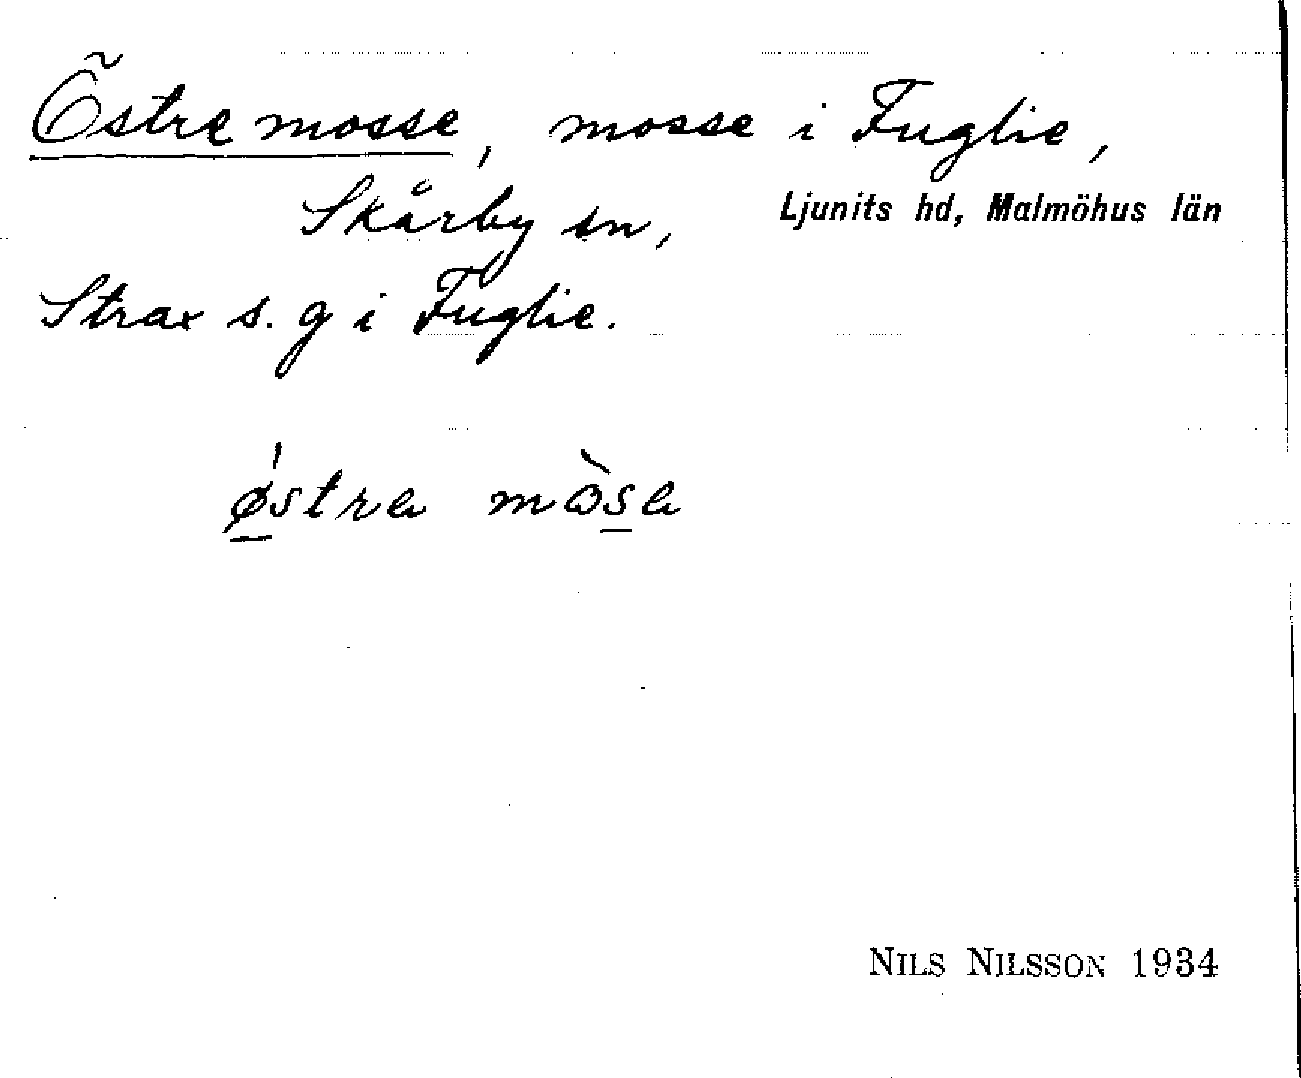 Östre mosse, mosse i Fuglie,
Skårby sn, Ljunits hd, Malmöhus län
Strax s. g i Fuglie.
østra mòsa
NILS NILSSON 1934